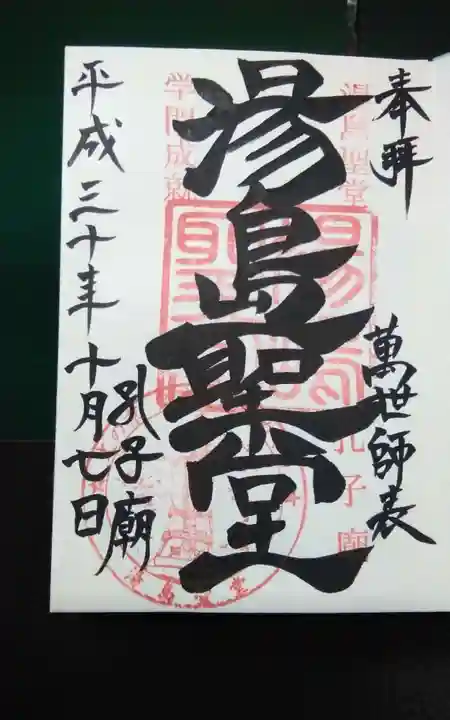 奉拜
萬世師表
湯島聖堂
孔子廟
湯島聖堂
孔子廟
学問成就
平成三十年十月七日